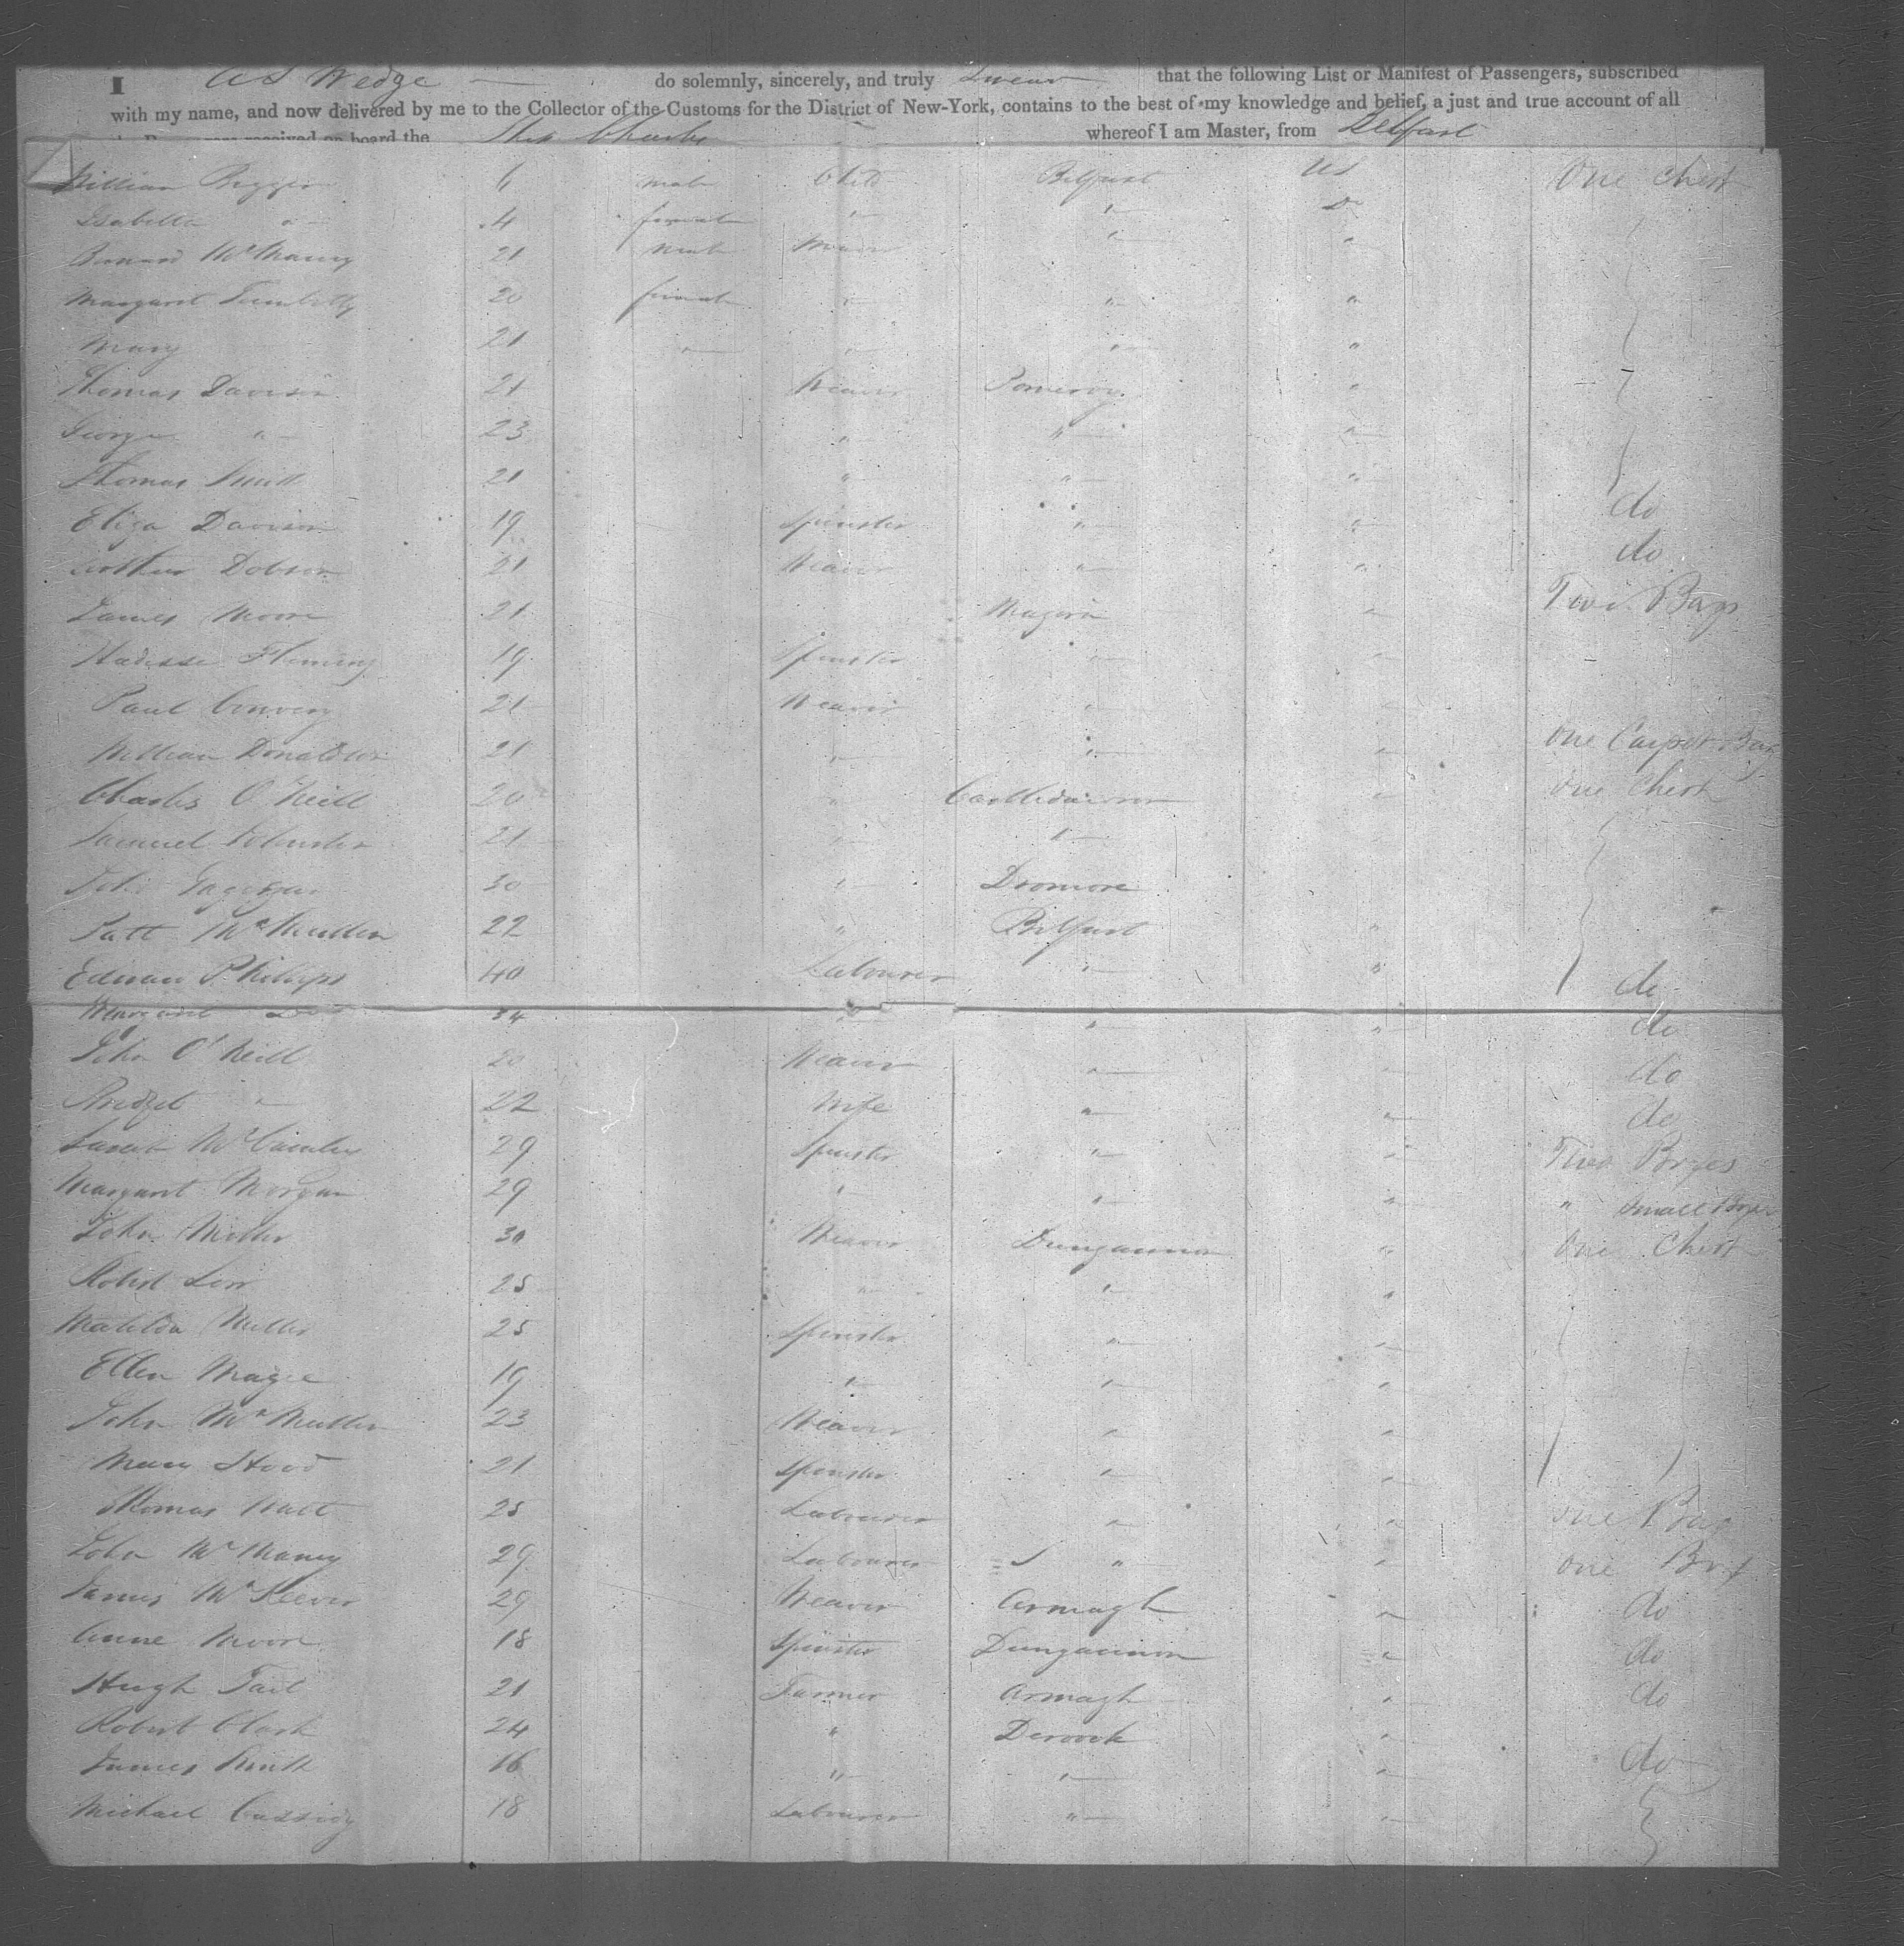 I A S Wedge — do solemnly, sincerely, and truly Swear that the following List or Manifest of Passengers, subscribed
with my name, and now delivered by me to the Collector of the Customs for the District of New-York, contains to the best of my knowledge and belief, a just and true account of all
received on board the Ship whereof I am Master, from Belfast
William 6 male Child Belfast US One Chest
Isabella " 4 female " " Do
Bernard 21 male Weaver " "
Margaret 20 female " " "
Mary 21 " " " "
Thomas Davison 21 Weaver Pomeroy "
George " 23 " " "
Thomas 21 " " "
Eliza Davison 19 Spinster " " do
Arthur Dobson 21 Weaver " " do
James Moore 21 " Two Bags
Fleming 19 Spinster " "
Paul Convery 21 Weaver " "
William Donaldson 21 " " " One Carpet Bag
Charles O'Neill 20 " " One Chest
Samuel 21 " "
John 30 " Dromore
Patt McMullen 22 " Belfast "
Edward Phillips 40 Labourer " " do
Margaret Do 34 " " " do
John O'Neill 20 Weaver " " do
Bridget " 22 Wife " " do
Sarah 29 Spinster " " Two Boxes
Margaret Morgan 29 " " " " Small Boxes
John Miller 30 Weaver Dungannon " One Chest
Robert 25 " " "
Matilda Miller 25 Spinster " "
Ellen Magee 19 " " "
John McMullen 23 Weaver " "
Mary Hood 21 Spinster " "
Thomas Watt 25 Labourer " " One Bag
John 29 Labourer " " One Box
James McKeever 29 Weaver Armagh " do
Anne Moore 18 Spinster Dungannon " do
Hugh Tait 21 Farmer Armagh " do
Robert Clark 24 " "
James 16 " " " do
Michael Cassidy 18 Labourer " "